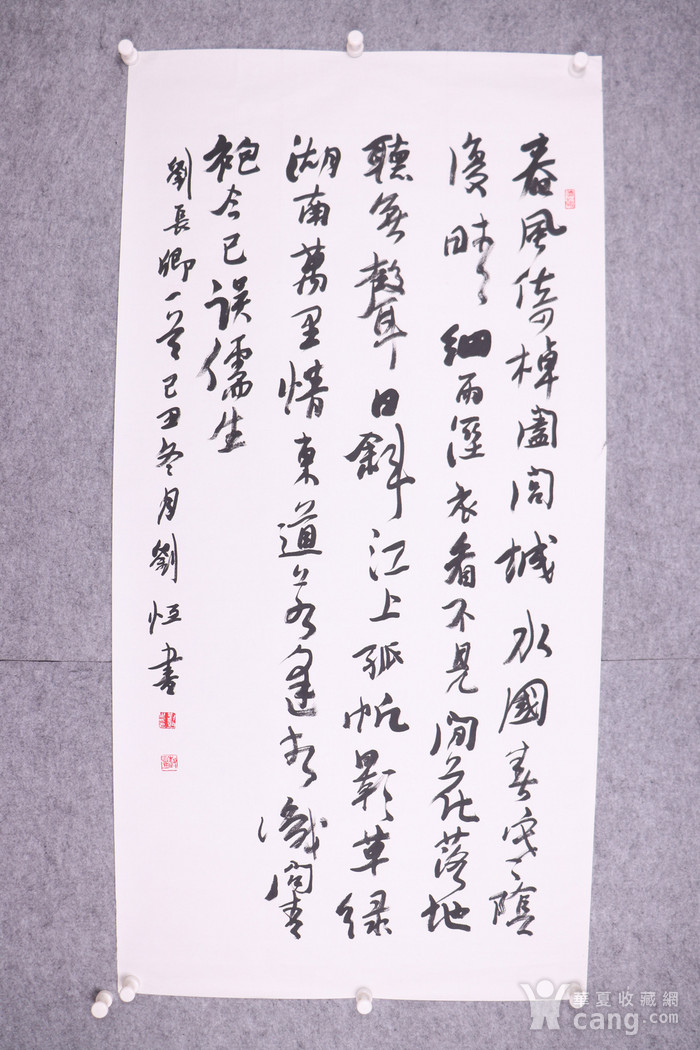 春風倚棹闔閭城水國春寒陰
復晴細雨溼衣看不見閒花落地
聽無聲日斜江上孤帆影草緑
湖南萬里情東道若逢相識問青
袍今已误儒生
劉長卿一首己丑冬月劉恒書
華夏收藏網
cang.com